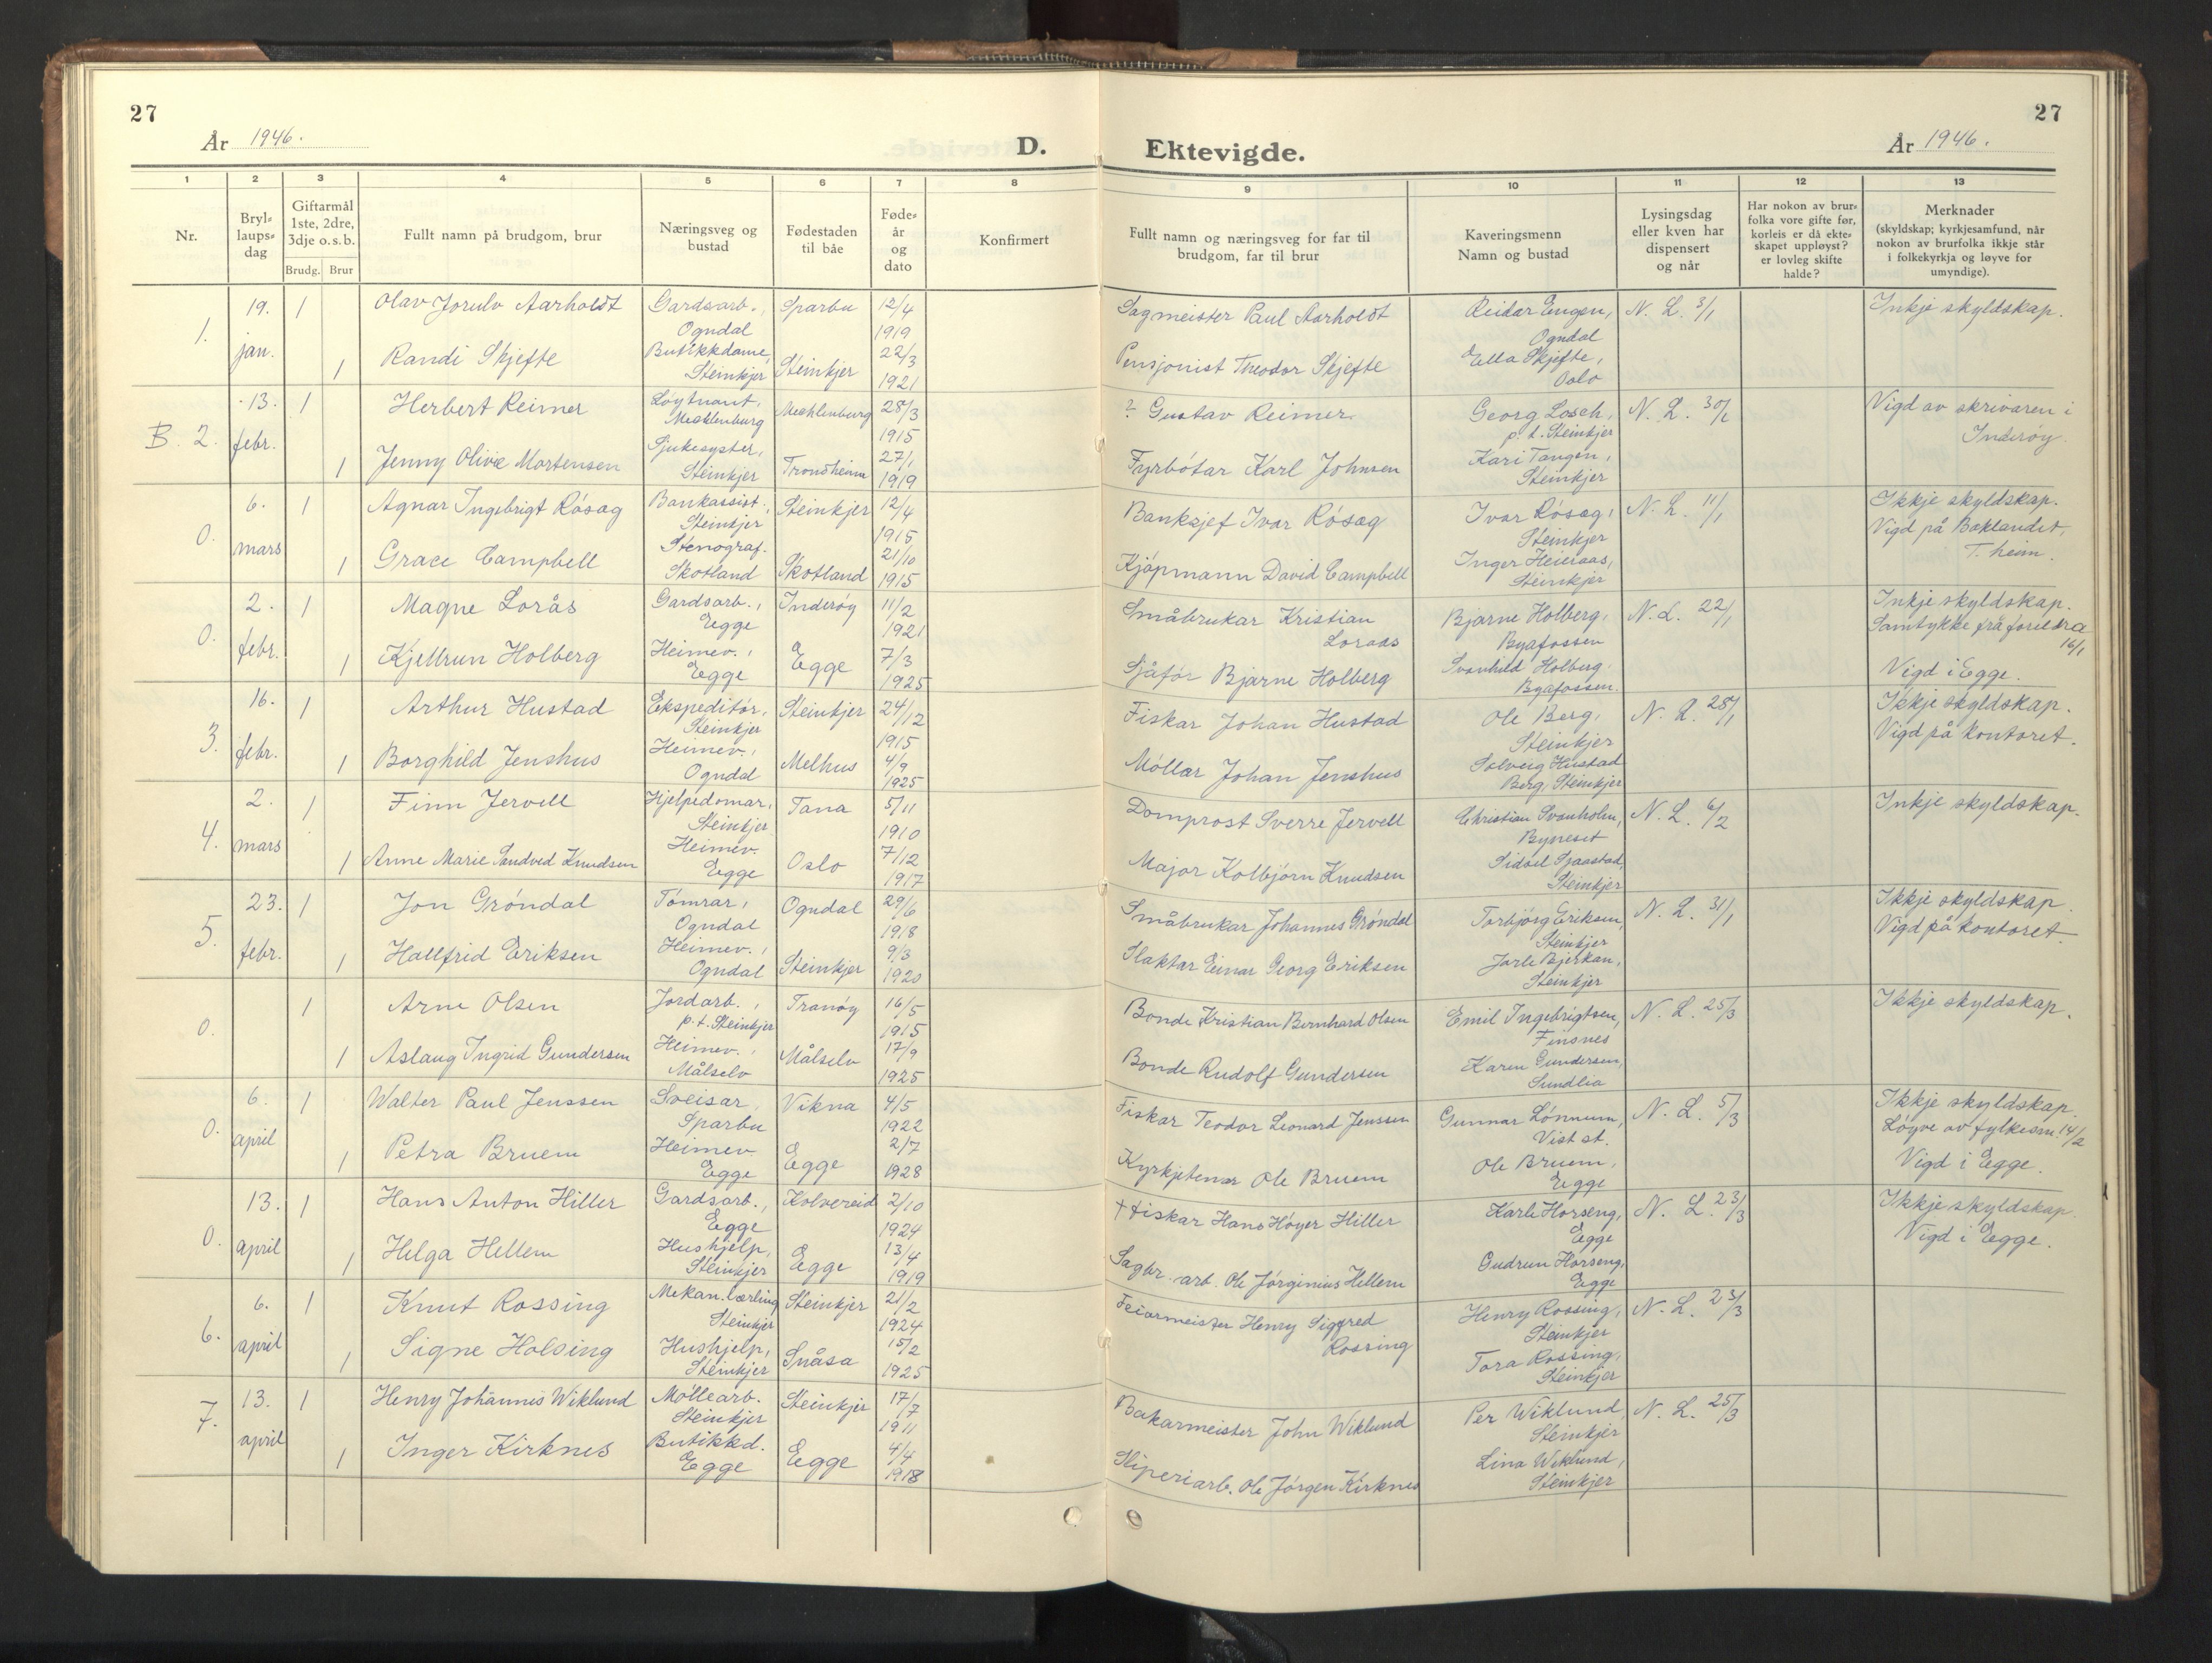 27
År 1946.
D.
1 2 3 4 5 6 7 8
Nr.
Bryl-
laups-
dag
Giftarmål
1ste, 2dre,
3dje o. s. b.
Brudg. Brur
Fullt namn på brudgom, brur
Næringsveg og
bustad
Fødestaden
til båe
Føde-
år
og
dato
Konfirmert
1. 19. jan. 1 Olav Jorulv Aarholdt Gardsarb., Ogndal Sparbu 12/4 1919
1 Randi Skjefte Butikkdame, Steinkjer Steinkjer 22/3 1921
B. 2. 13. febr. 1 Herbert Reimer Løytnant, Mecklenburg Mecklenburg 28/3 1915
1 Jenny Olivie Mortensen Sjukesyster, Steinkjer Trondheim 27/1 1919
0. 6. mars 1 Agnar Ingebrigt Rósag Bankassist., Steinkjer Steinkjer 12/4 1915
1 Grace Campbell Stenograf. Skotland Skotland 21/10 1915
0. 2. febr. 1 Magne Lorås Gardsarb., Egge Inderóy 11/2 1921
1 Kjellrun Holberg Heimev., Egge Egge 7/3 1925
3. 16. febr. 1 Arthur Hustad Ekspeditór, Steinkjer Steinkjer 24/12 1915
1 Borghild Jenshus Heimev., Ogndal Melhus 4/9 1925
4. 2. mars 1 Finn Jervell Hjelpedomar, Steinkjer Tana 5/11 1910
1 Anne Marie Sandved Knudsen Heimev. Egge Oslo 7/12 1917
5. 23. febr. 1 Jon Gróndal Tómrar, Ogndal Ogndal 29/6 1918
1 Hallfrid Eriksen Heimev., Ogndal Steinkjer 9/3 1920
0. 1 Arne Olsen Jordarb., p.t. Steinkjer Tranóy 16/5 1915
1 Aslaug Ingrid Gundersen Heimev., Målselv Målselv 17/9 1925
0. 6. april 1 Walter Paul Jenssen Sveisar, Sparbu Vikna 4/5 1922
1 Petra Bruem Heimev Egge Egge 2/7 1928
0. 13. april 1 Hans Anton Hiller Gardsarb., Egge Kolvereid 2/10 1924
1 Helga Hellem Hushjelp, Steinkjer Egge 13/4 1919
6. 6. april 1 Knut Rossing Mekan. lærling Steinkjer Steinkjer 21/2 1924
1 Signe Holsing Hushjelp, Steinkjer Snåsa 15/2 1925
7. 13. april 1 Henry Johannes Wiklund Móllearb. Steinkjer Steinkjer 17/7 1911
1 Inger Kirknes Butikkd. Egge Egge 4/4 1918
27
Ektevigde.
År 1946.
9 10 11 12 13
Fullt namn og næringsveg for far til
brudgom, far til brur
Kaveringsmenn
Namn og bustad
Lysingsdag
eller kven har
dispensert
og når
Har nokon av brur-
folka vore gifte før,
korleis er då ekte-
skapet uppløyst?
er lovleg skifte
halde?
Merknader
(skyldskap; kyrkjesamfund, når
nokon av brurfolka ikkje står
i folkekyrkja og løyve for
umyndige).
Sagmeister Paul Aarholdt Reidar Eugen, Ogndal N. L. 3/1 Inkje skyldskap.
Pensjonist Theodor Skjefte Ella Skjefte, Oslo
? Gustav Reimer Georg Losch, p.t. Steinkjer N. L. 30/1 Vigd av skrivaren i Inderóy.
Fyrbótar Karl Johnsen Kari Tangen, Steinkjer
Banksjef Ivar Rósag Ivar Rósag, Steinkjer N. L. 11/1 Ikkje skyldskap. Vigd på Baklandet, T.heim.
Kjópmann David Campbell Inger Heieraas, Steinkjer
Småbrukar Kristian Loraas Bjarne Holberg, Byafossen N. L. 22/1 Inkje skyldskap. Samtykke frå foreldra 16/1
Sjåfór Bjarne Holberg Svanhild Holberg, Byafossen. Vigd i Egge.
Fiskar Johan Hustad Ole Berg, Steinkjer N. L. 28/1 Ikkje skyldskap. Vigd på kontoret.
Móllar Johan Jenshus Solveig Hustad Berg, Steinkjer
Domprost Sverre Jervell Christian Svanholm, Byneset N. L. 6/2 Inkje skyldskap.
Major Kolbjórn Knudsen Sidsel Sjaastad, Steinkjer
Småbrukar Johannes Gróndal Torbjórg Eriksen, Steinkjer N. L. 31/1 Ikkje skyldskap. Vigd på kontoret.
Slaktar Einar Georg Eriksen Jarle Bjerkan, Steinkjer
Bonde Kristian Bernhard Olsen Emil Ingebrigtsen, Finsnes N. L. 25/3 Ikkje skyldskap.
Bonde Rudolf Gundersen Karen Gundersen, Sundlia
Fiskar Teodor Leonard Jenssen Gunnar Lónnum, Vist st. N. L. 5/3 Ikkje skyldskap. Lóyve av fylkesm. 14/2
Kyrkjetenar Ole Bruem Ole Bruem, Egge Vigd i Egge.
† Fiskar Hans Hóyer Hiller Karle Horseng, Egge N. L. 23/3 Ikkje skyldskap. Vigd i Egge.
Sagbr. arb. Ole Jórginius Hellem Gudrun Horseng, Egge
Feiarmeister Henry Sigfred Rossing Henry Rossing, Steinkjer N. L. 23/3
Tora Rossing, Steinkjer
Bakarmeister John Wiklund Per Wiklund, Steinkjer N. L. 25/3
Sliperiarb. Ole Jórgen Kirknes Lina Wiklund, Steinkjer